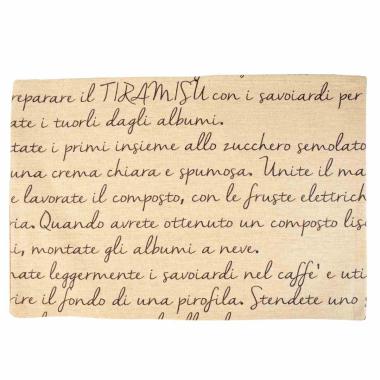 reparare il TIRAMISÙ con i savoiardi per
ate i tuorli dagli albumi.
tate i primi insieme allo zucchero semolato
una crema chiara e spumosa. Unite il ma
e lavorate il composto, con le fruste elettrich
ria. Quando avrete ottenuto un composto lisc
i, montate gli albumi a neve.
nate leggermente i savoiardi nel caffe' e uti
rire il fondo di una pirofila. Stendete uno s